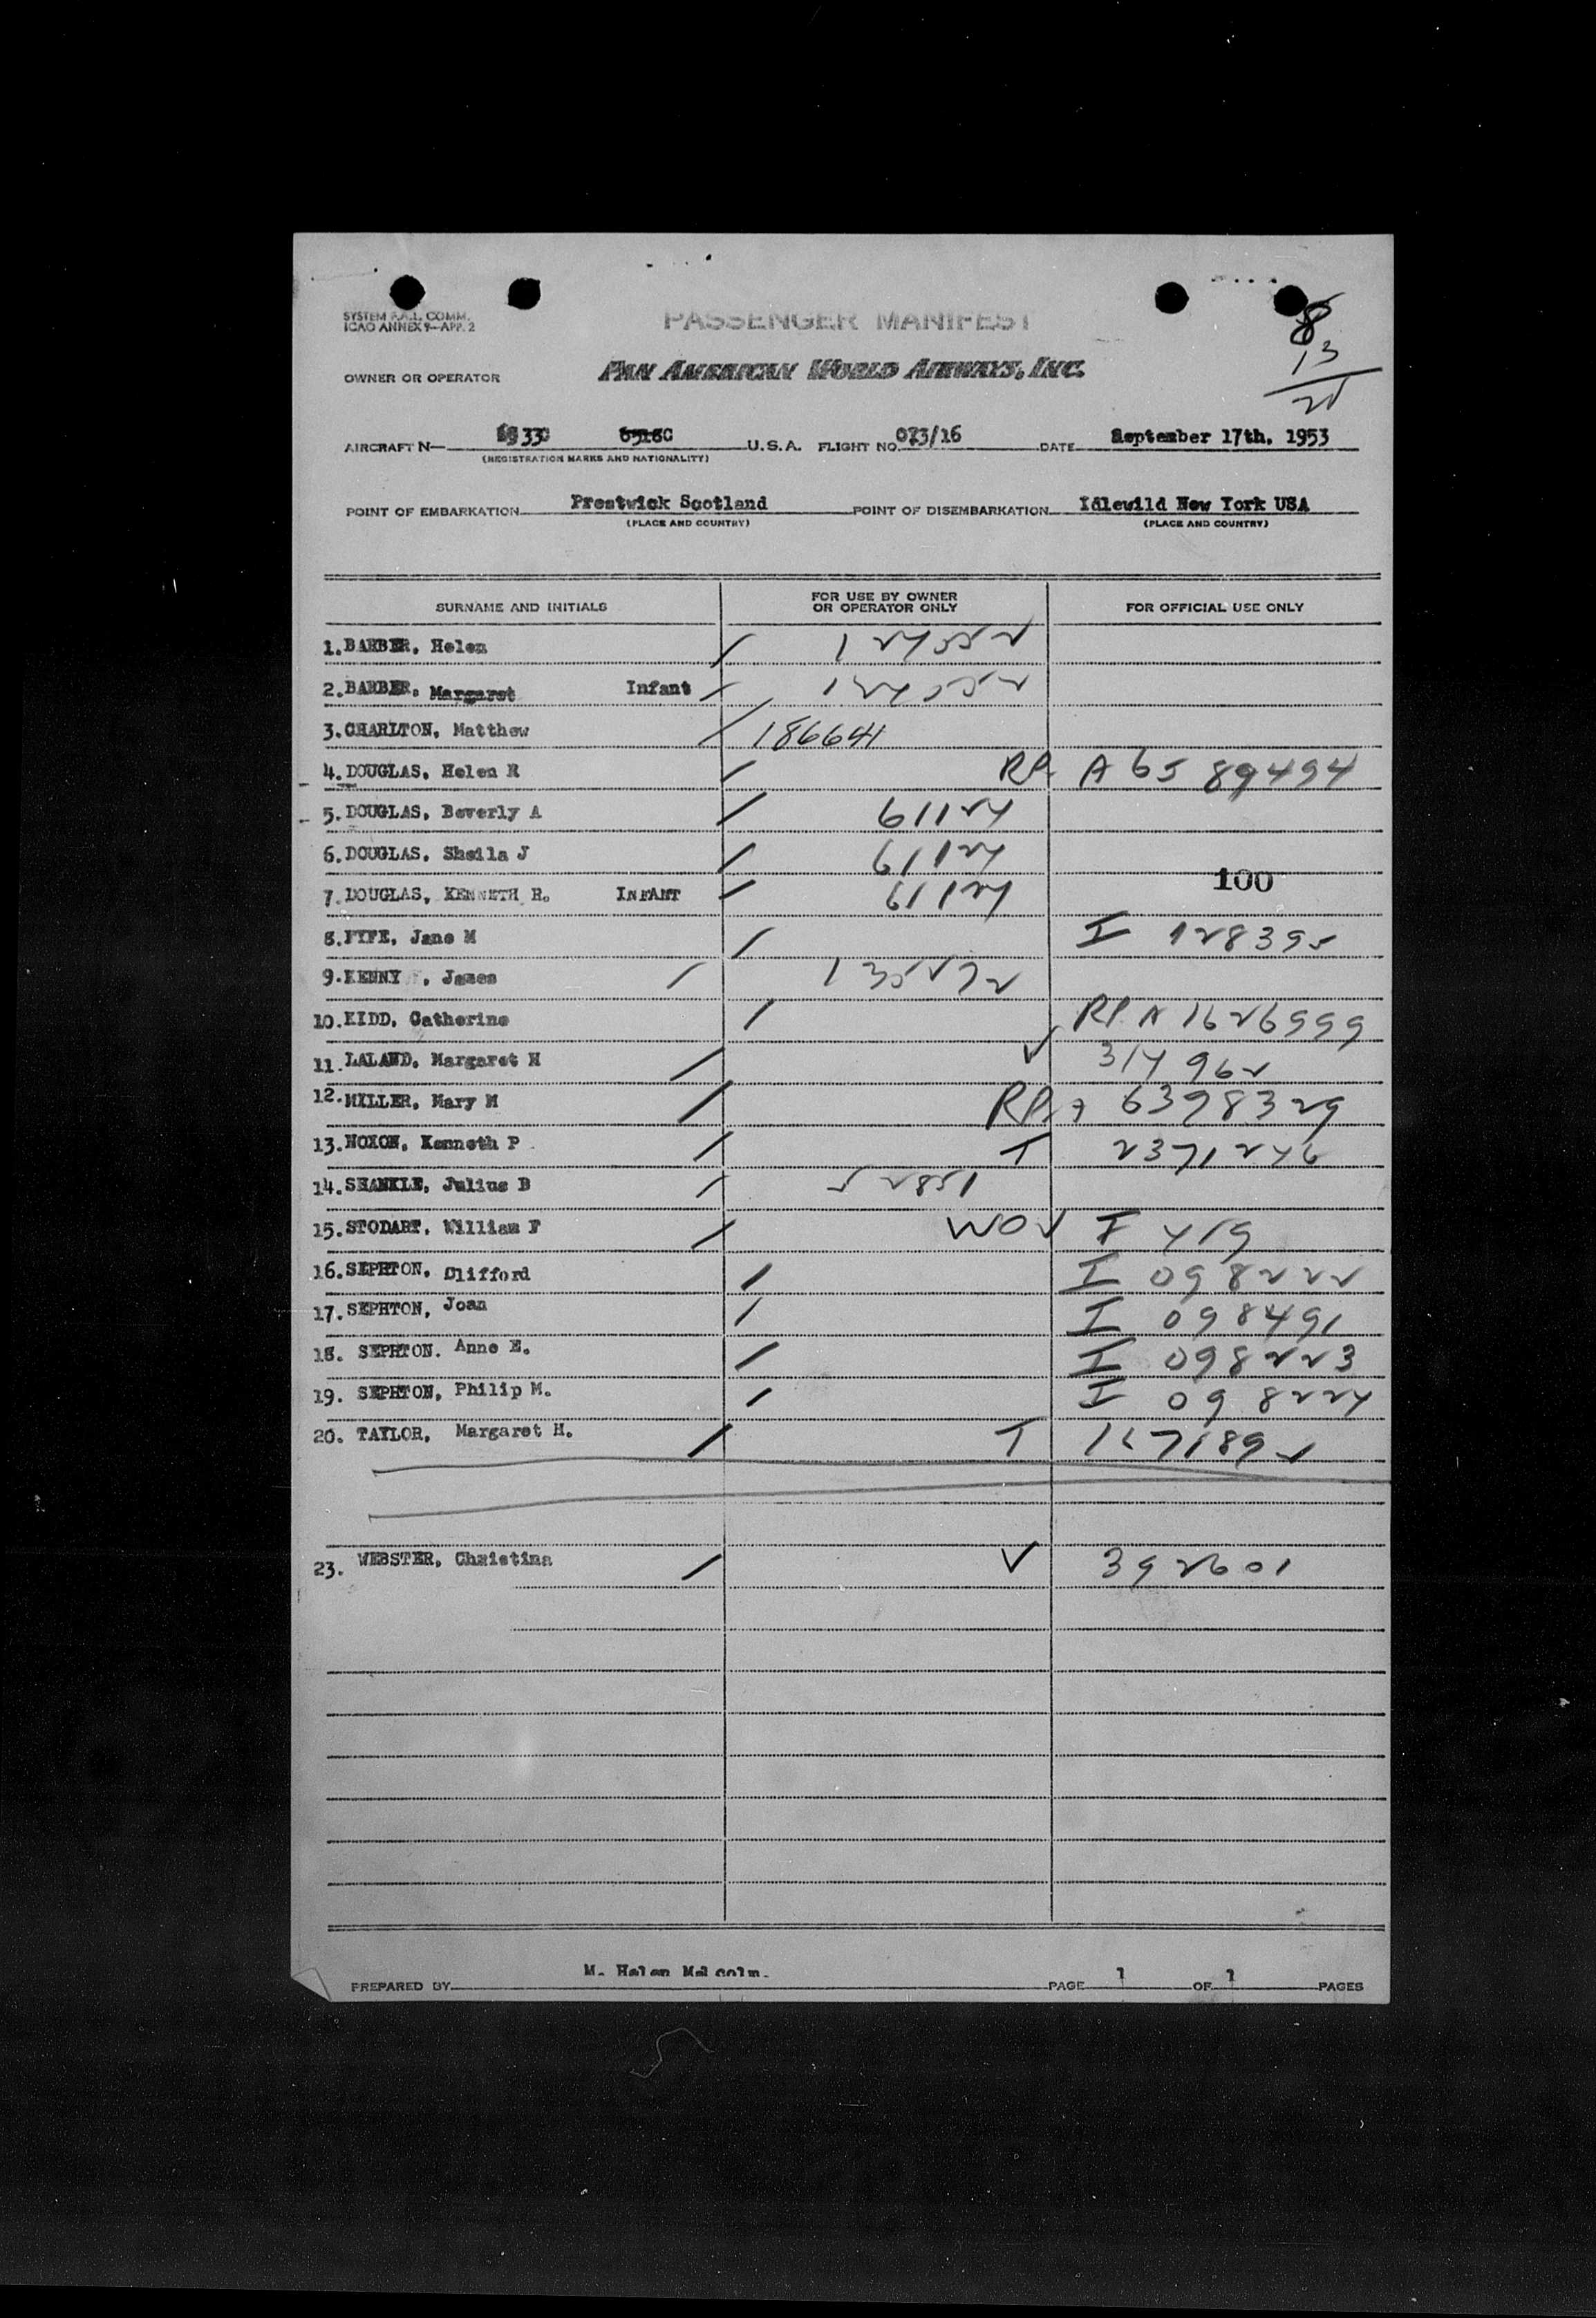 SYSTEM F.A.L. COMM.
ICAO ANNEX 9—APP. 2
PASSENGER MANIFEST
8
13
21
OWNER OR OPERATOR PAN AMERICAN WORLD AIRWAYS, INC.
AIRCRAFT N— U.S.A. FLIGHT NO. 073/16 DATE September 17th, 1953
(REGISTRATION MARKS AND NATIONALITY)
POINT OF EMBARKATION Prestwick Scotland POINT OF DISEMBARKATION Idlewild New York USA
(PLACE AND COUNTRY) (PLACE AND COUNTRY)
SURNAME AND INITIALS FOR USE BY OWNER OR OPERATOR ONLY FOR OFFICIAL USE ONLY
1. BARBER, Helen / 124552
2. BARBER, Margaret Infant / 124552
3. CHARLTON, Matthew / 186641
4. DOUGLAS, Helen R / RP A 6589494
5. DOUGLAS, Beverly A / 61124
6. DOUGLAS, Sheila J / 61124
7. DOUGLAS, KENNETH R. INFANT / 61124 100
8. FYFE, Jane M / I 128395
9. KENNY , James /
10. KIDD, Catherine / RP A 1626999
11. LALAND, Margaret H / V 314962
12. MILLER, Mary M / RP A 6398329
13. NOXON, Kenneth P / T 2371246
14. SHANKLE, Julius B / 52851
15. STODART, William F / I 419
16. SEPHTON, Clifford / I 098222
17. SEPHTON, Joan / I 098491
18. SEPHTON. Anne E. / I 098223
19. SEPHTON, Philip M. / I 098224
20. TAYLOR, Margaret H. / T
23. WEBSTER, Christina / V 392601
PREPARED BY M. Helen Malcolm. PAGE 1 OF 1 PAGES